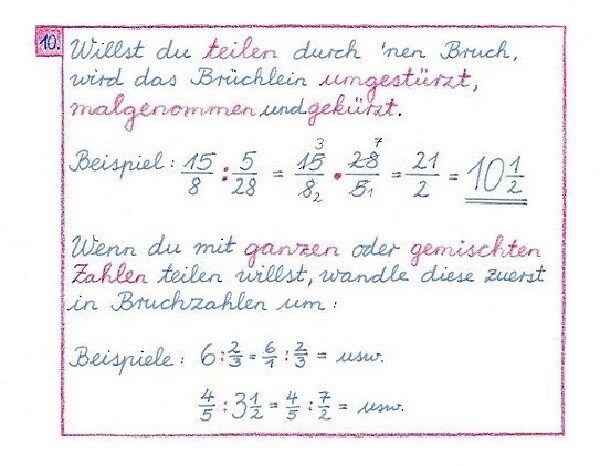 10. Willst du teilen durch 'nen Bruch,
wird das Brüchlein umgestürzt,
malgenommen und gekürzt.
Beispiel: 15/8 : 5/28 = 15/8 · 28/5 = 21/2 = 10 1/2
3 7
2 1
Wenn du mit ganzen oder gemischten
Zahlen teilen willst, wandle diese zuerst
in Bruchzahlen um:
Beispiele: 6 : 2/3 = 6/1 : 2/3 = usw.
4/5 : 3 1/2 = 4/5 : 7/2 = usw.